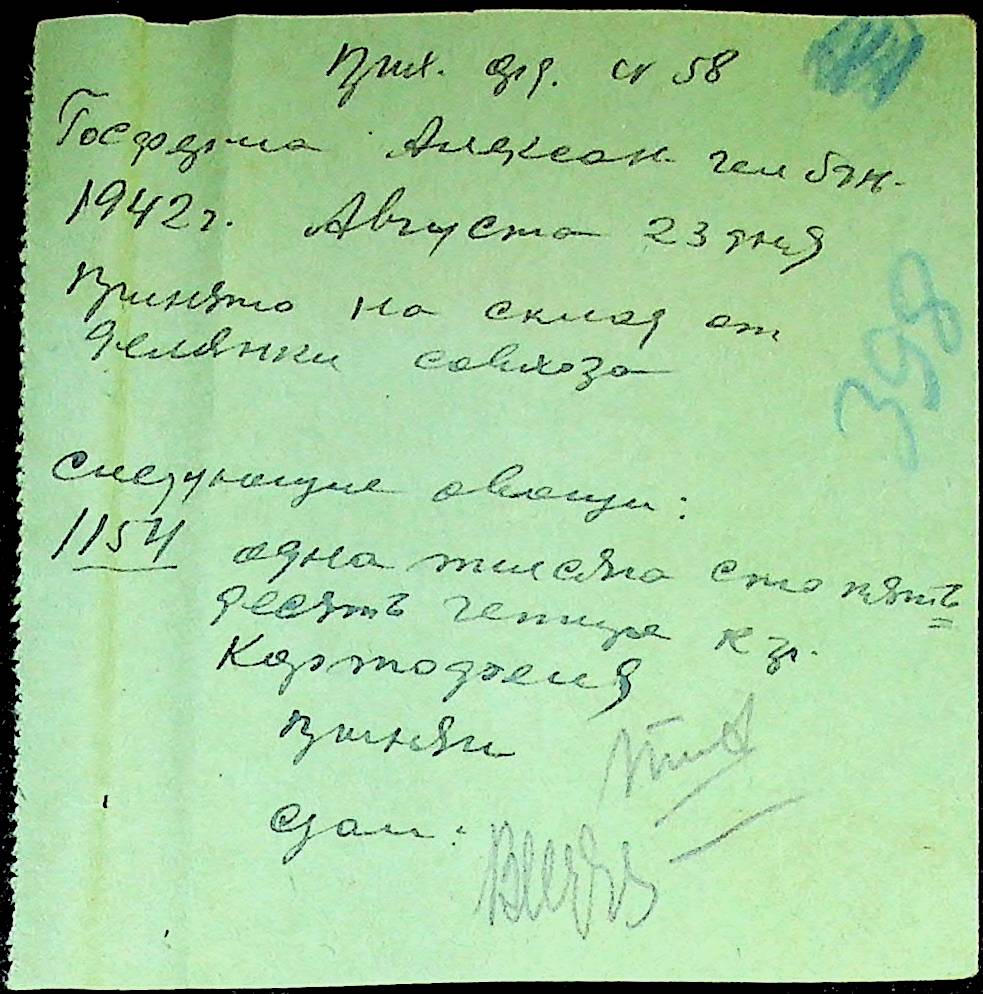 Прих. орд. № 58
Госферма Александ
1942 г. Августа 23 дня
Принято на склад от
делянки совхоза
398
следующие овощи:
1154 одна тисяча сто пять
десять чептире кгр.
Картофеля
Принял
сдал: